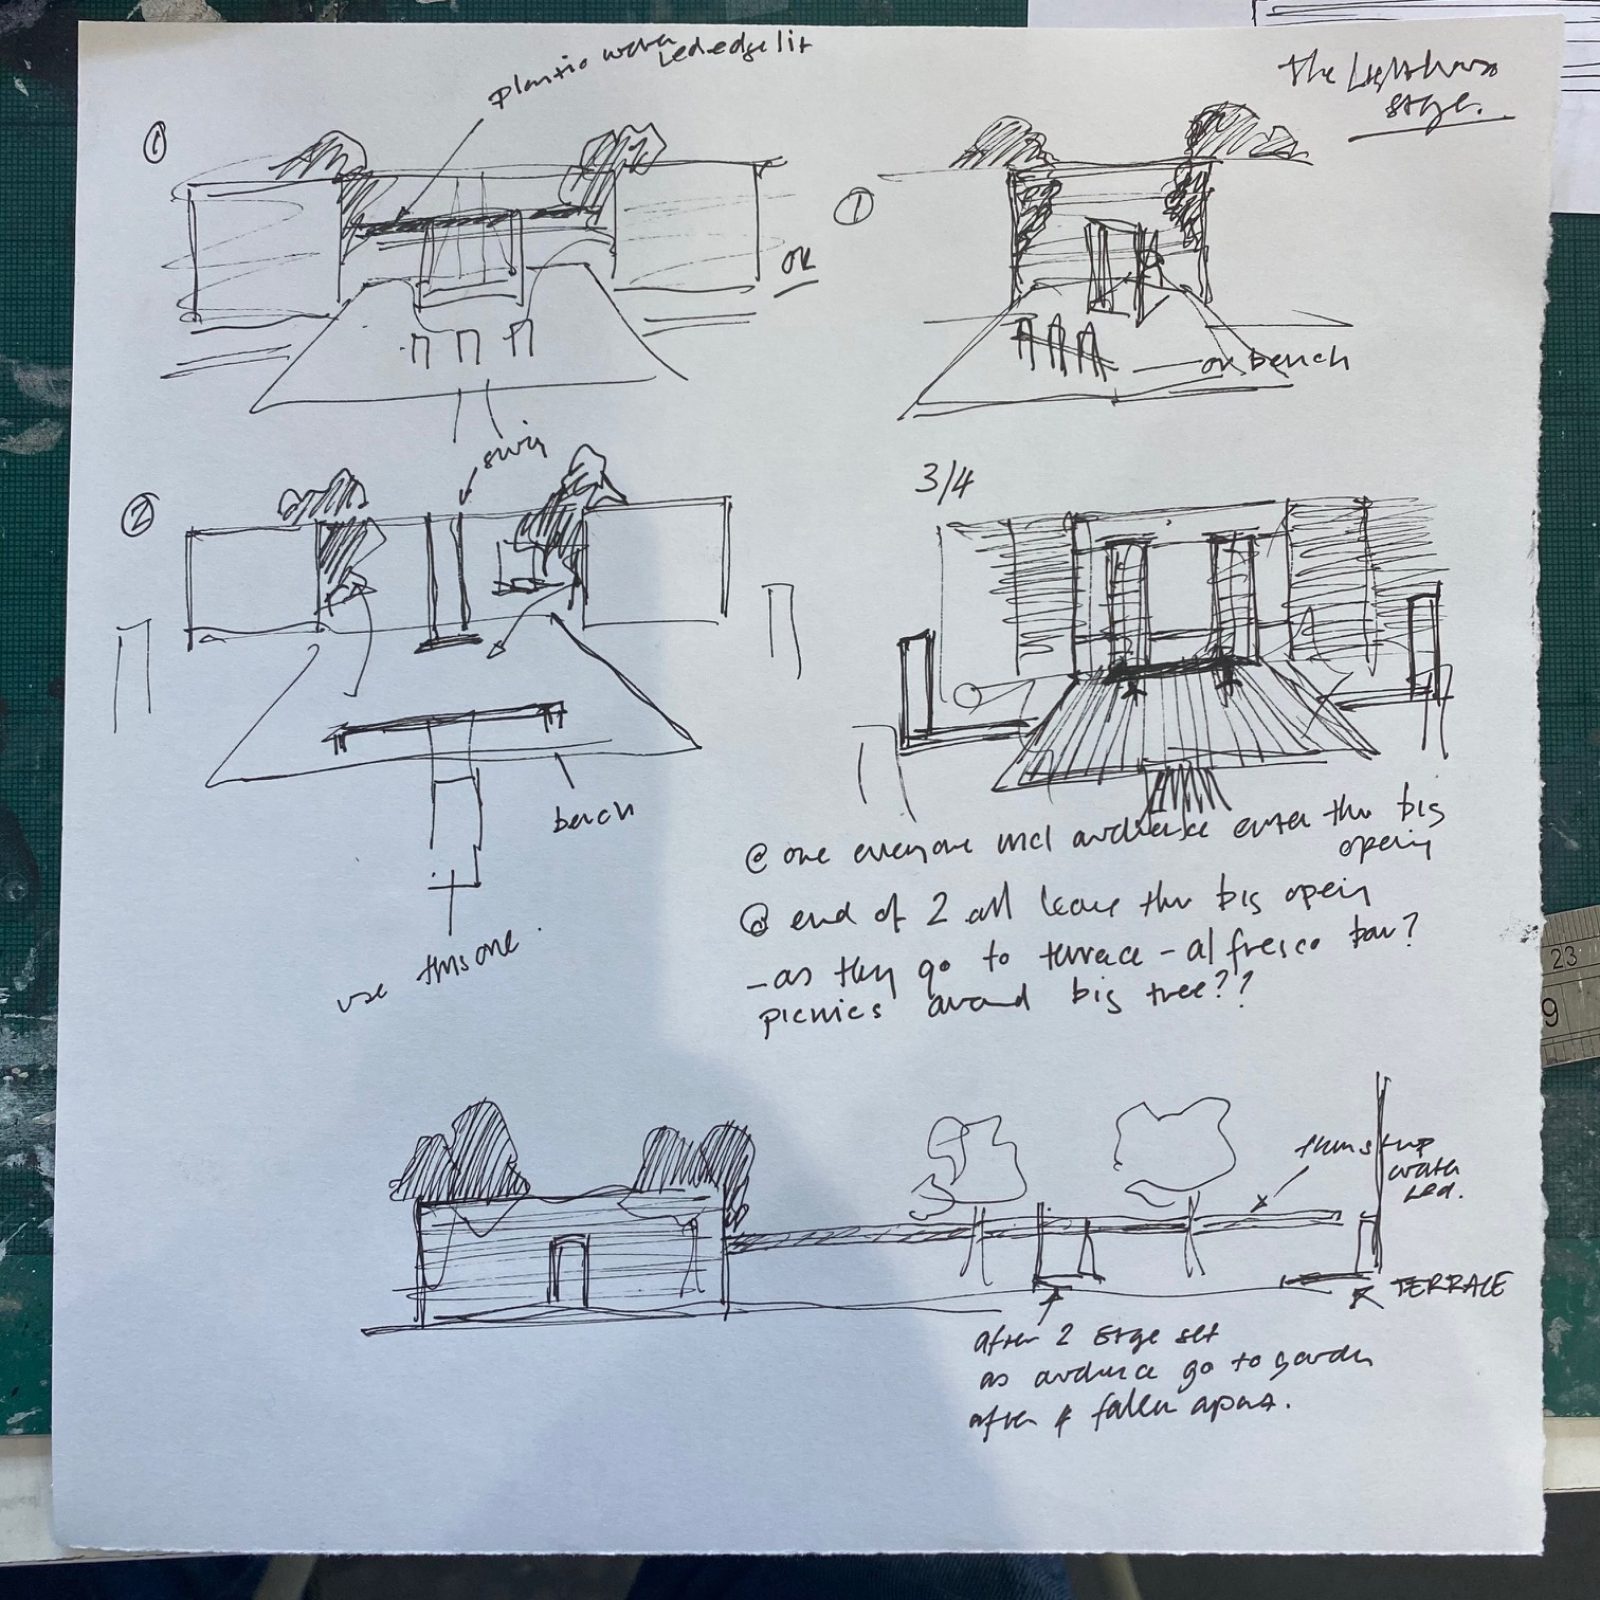 plastic water
Led edge lit
The Lighthouse
stage.
①
①
OK
or bench
swing
②
3/4
bench
use this one.
@ one everyone incl audience enter thru big
opening
@ end of 2 all leave thru big opening
- as they go to terrace - al fresco bar?
picnics around big tree??
water
Led.
TERRACE
after 2 stage set
as audience go to garden
after 4 fallen apart.
23
9